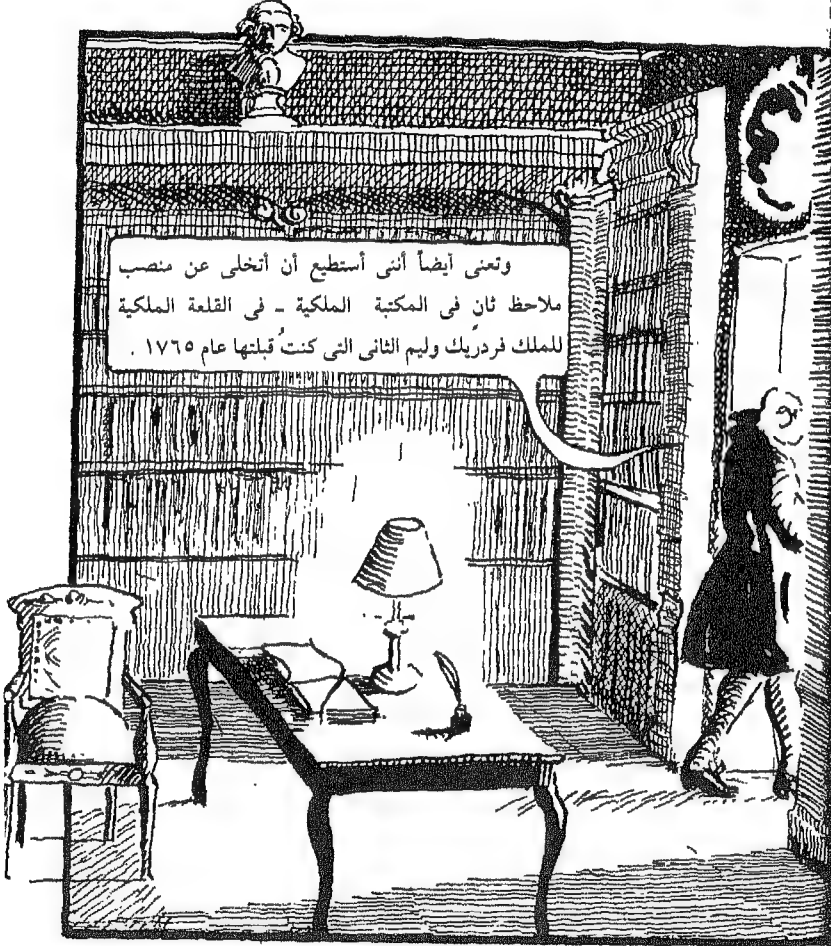 وتعنى أيضاً أننى أستطيع أن أتخلى عن منصب
ملاحظ ثانٍ فى المكتبة الملكية ـ فى القلعة الملكية
للملك فردريك وليم الثانى التى كنتُ قبلتها عام ١٧٦٥ .